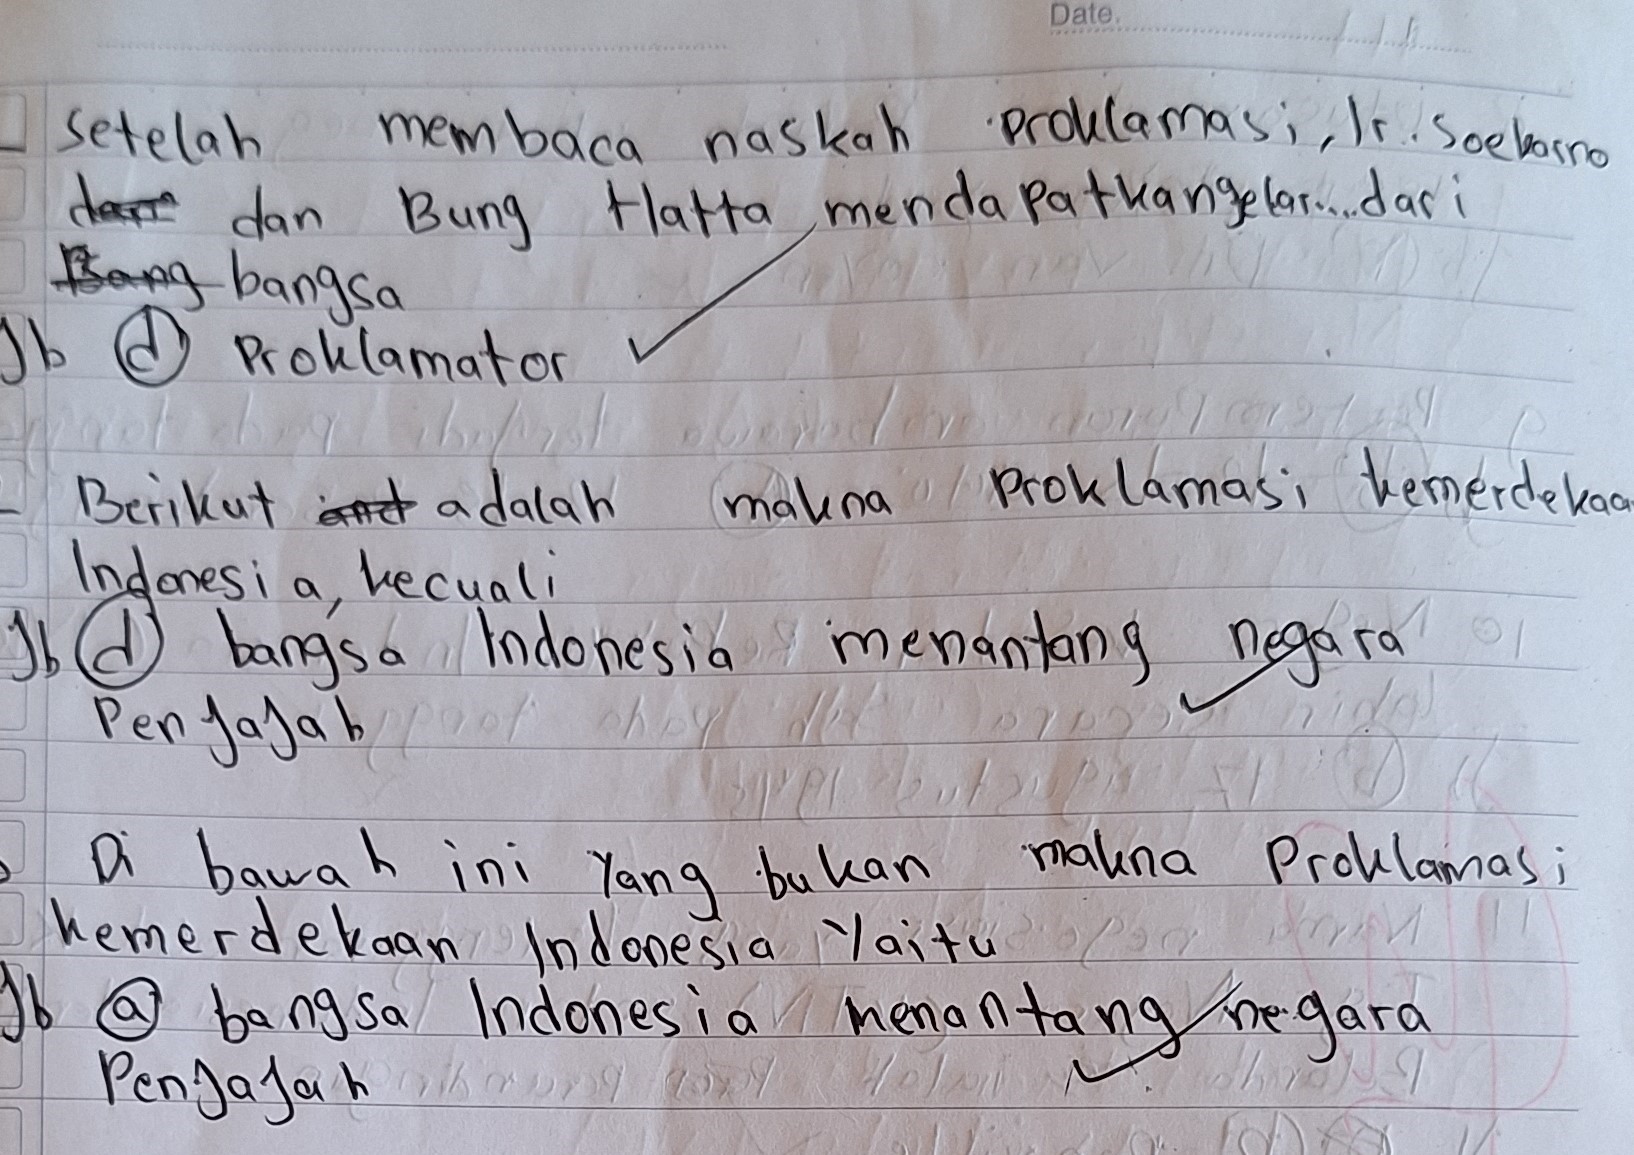 Date.
setelah membaca naskah proklamasi, Ir. Soekarno
dan Bung Hatta mendapatkan gelar.....dari
bangsa
Jb d Proklamator
Berikut adalah makna Proklamasi kemerdekaa
Indonesia, kecuali
Jb d bangsa Indonesia menantang negara
Penjajah
Di bawah ini Yang bukan makna Proklamasi
kemerdekaan Indonesia Yaitu
Jb a bangsa Indonesia menantang negara
Penjajah